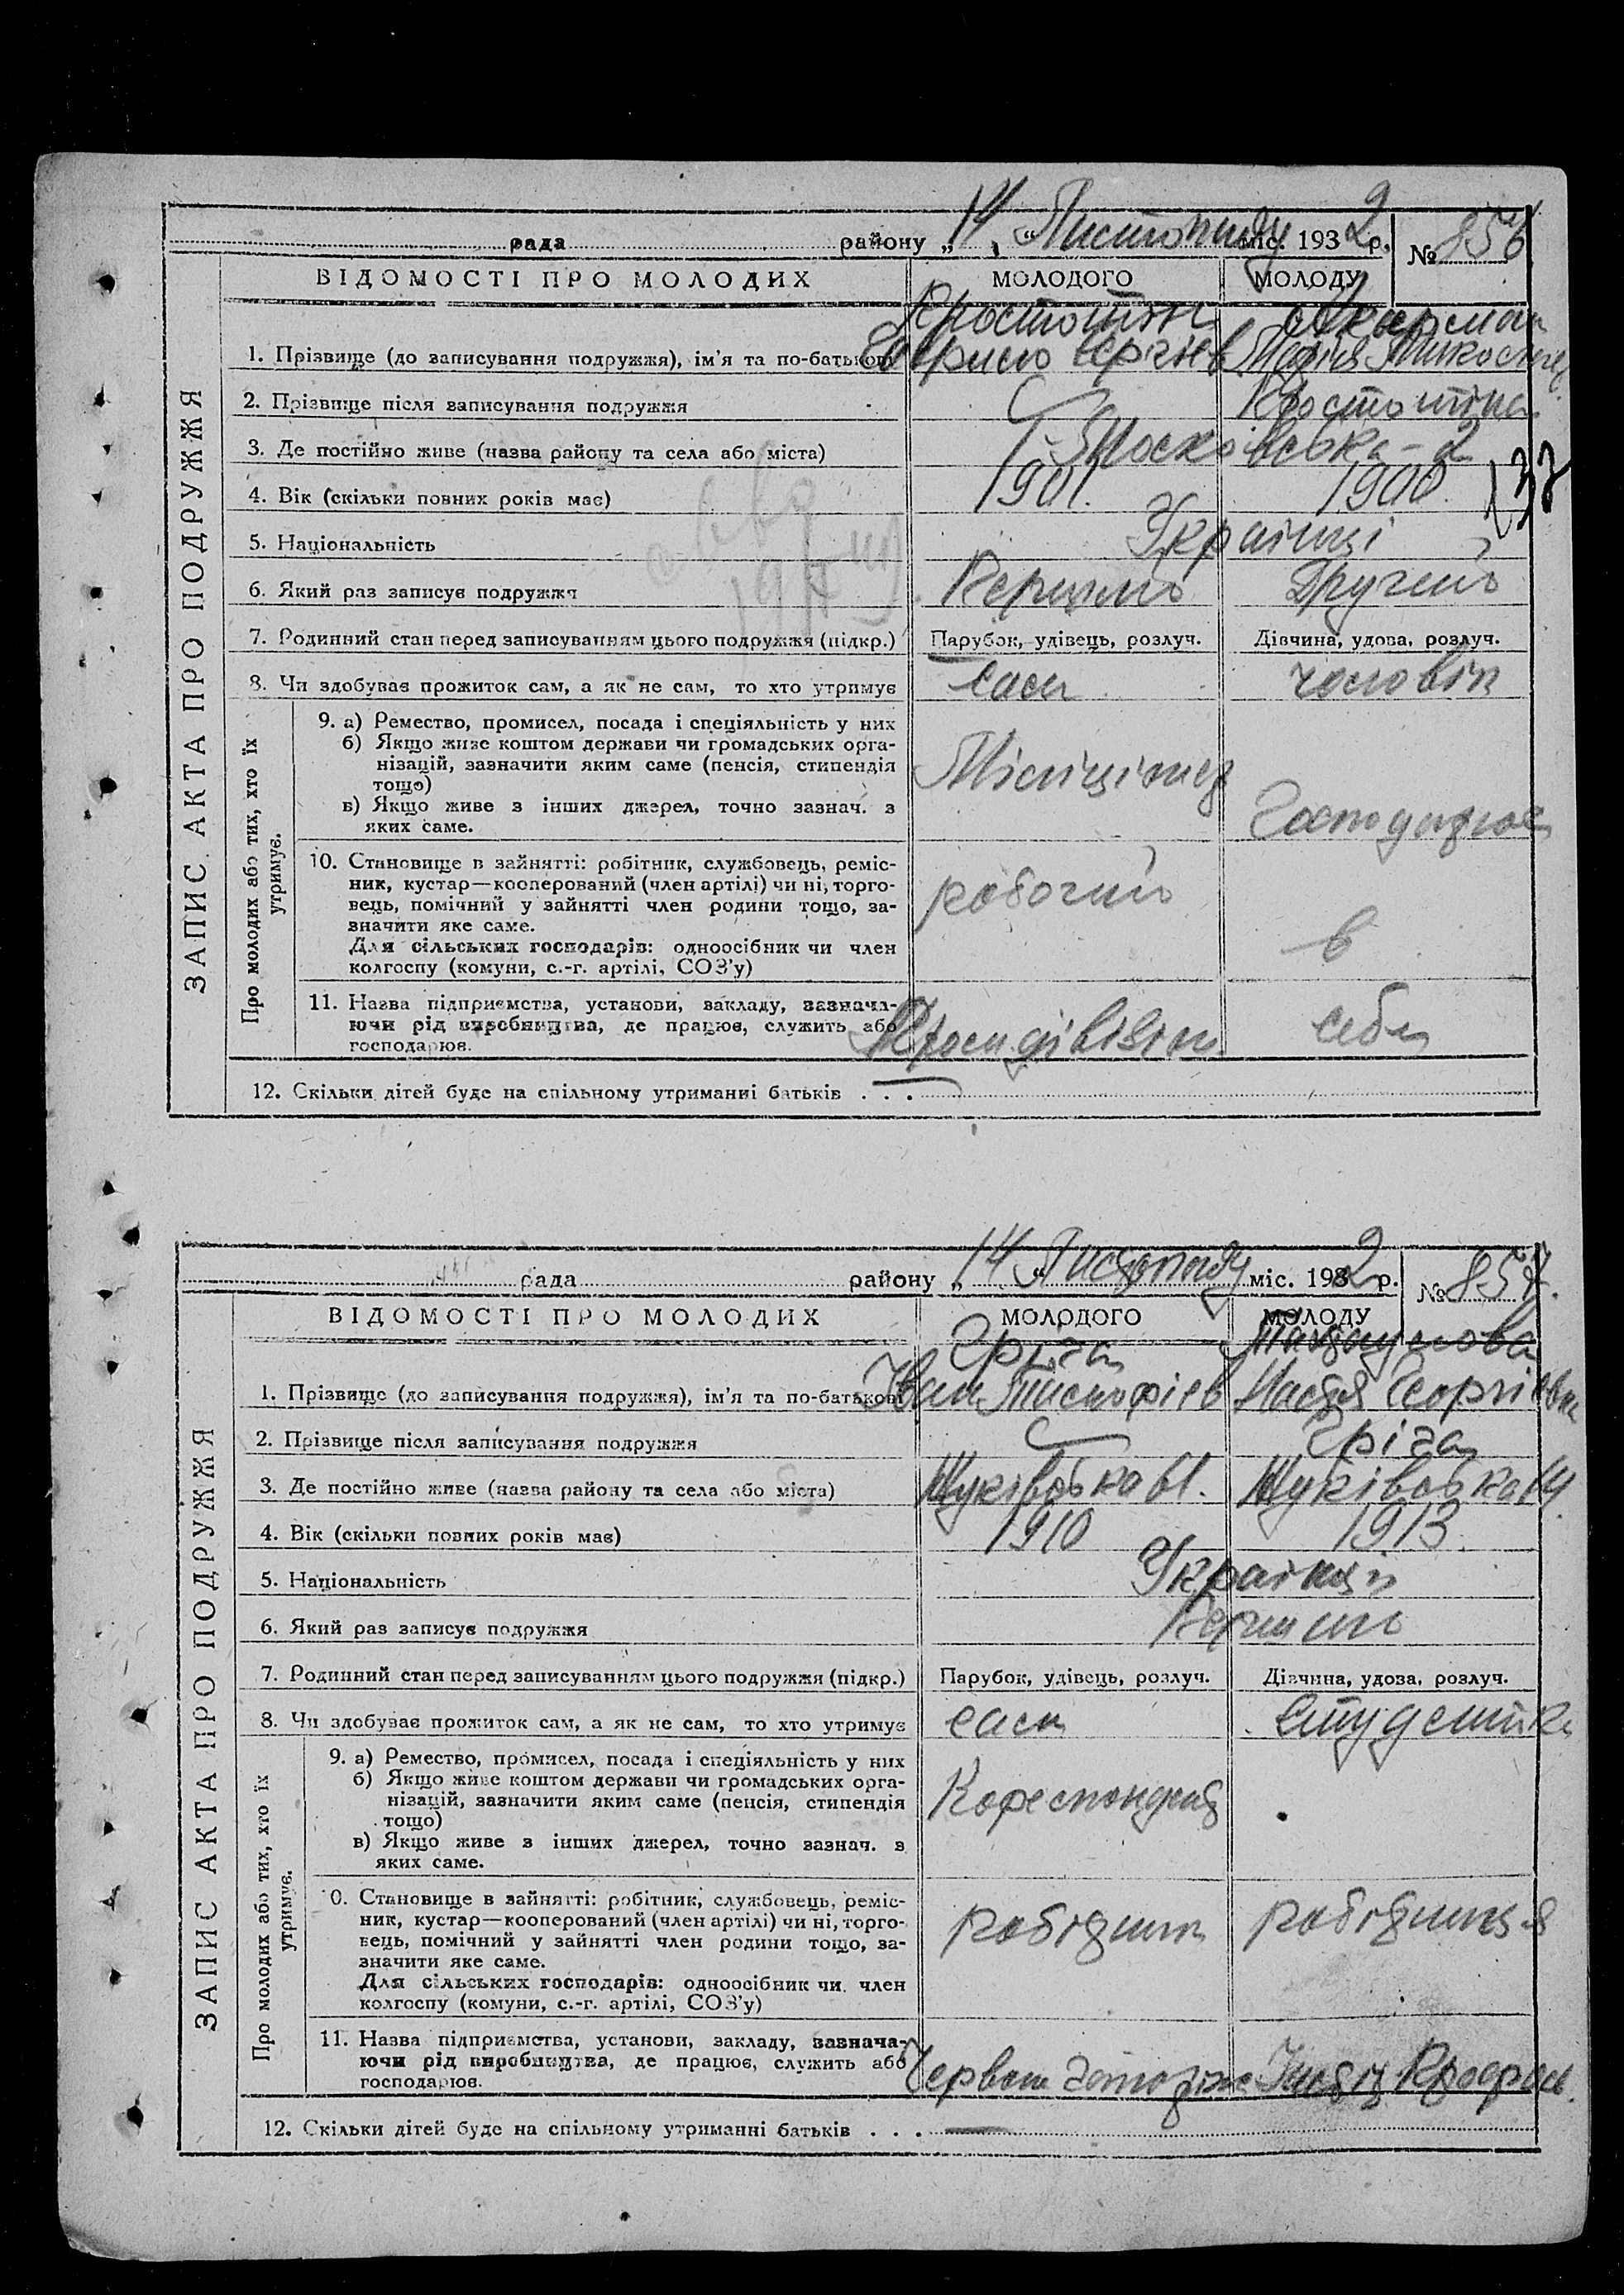 рада району „14“ Листопаду міс. 1932 р. № 856
ВІДОМОСТІ ПРО МОЛОДИХ МОЛОДОГО МОЛОДУ
ЗАПИС АКТА ПРО ПОДРУЖЖЯ
1. Прізвище (до записування подружжя), ім'я та по-батькові
2. Прізвище після записування подружжя
3. Де постійно живе (назва району та села або міста) Московська-2
4. Вік (скільки повних років має) 1901. 1900.
5. Національність Українці
6. Який раз записує подружжя Перший Другий
7. Родинний стан перед записуванням цього подружжя (підкр.) Парубок, удівець, розлуч. Дівчина, удова, розлуч.
8. Чи здобуває прожиток сам, а як не сам, то хто утримує сам чоловік
Про молодих або тих, хто їх утримує.
9. а) Ремество, промисел, посада і спеціяльність у них
б) Якщо живе коштом держави чи громадських орга-
нізацій, зазначити яким саме (пенсія, стипендія
тощо)
в) Якщо живе з інших джерел, точно зазнач. з
яких саме.
Міліціонер
10. Становище в зайнятті: робітник, службовець, реміс-
ник, кустар—кооперований (член артілі) чи ні, торго-
вець, помічний у зайнятті член родини тощо, за-
значити яке саме.
Для сільських господарів: одноосібник чи член
колгоспу (комуни, с.-г. артілі, СОЗ'у)
робочий в
11. Назва підприємства, установи, закладу, зазнача-
ючи рід виробництва, де працює, служить або
господарює.
себе
12. Скільки дітей буде на спільному утриманні батьків . . . —
рада району „14“ Листопаду міс. 1932 р. № 857.
ВІДОМОСТІ ПРО МОЛОДИХ МОЛОДОГО МОЛОДУ
ЗАПИС АКТА ПРО ПОДРУЖЖЯ
Гріга
1. Прізвище (до записування подружжя), ім'я та по-батькові Іван Настя Георгієвна
2. Прізвище після записування подружжя Гріга
3. Де постійно живе (назва району та села або міста)
4. Вік (скільки повних років має) 1910 1913.
5. Національність Українці
6. Який раз записує подружжя Перший
7. Родинний стан перед записуванням цього подружжя (підкр.) Парубок, удівець, розлуч. Дівчина, удова, розлуч.
8. Чи здобуває прожиток сам, а як не сам, то хто утримує сам студентка
Про молодих або тих, хто їх утримує.
9. а) Ремество, промисел, посада і спеціяльність у них
б) Якщо живе коштом держави чи громадських орга-
нізацій, зазначити яким саме (пенсія, стипендія
тощо)
в) Якщо живе з інших джерел, точно зазнач. з
яких саме.
Кореспондент
0. Становище в зайнятті: робітник, службовець, реміс-
ник, кустар—кооперований (член артілі) чи ні, торго-
вець, помічний у зайнятті член родини тощо, за-
значити яке саме.
Для сільських господарів: одноосібник чи член
колгоспу (комуни, с.-г. артілі, СОЗ'у)
робітник робітниця
11. Назва підприємства, установи, закладу, зазнача-
ючи рід виробництва, де працює, служить або
господарює.
12. Скільки дітей буде на спільному утриманні батьків . . . —